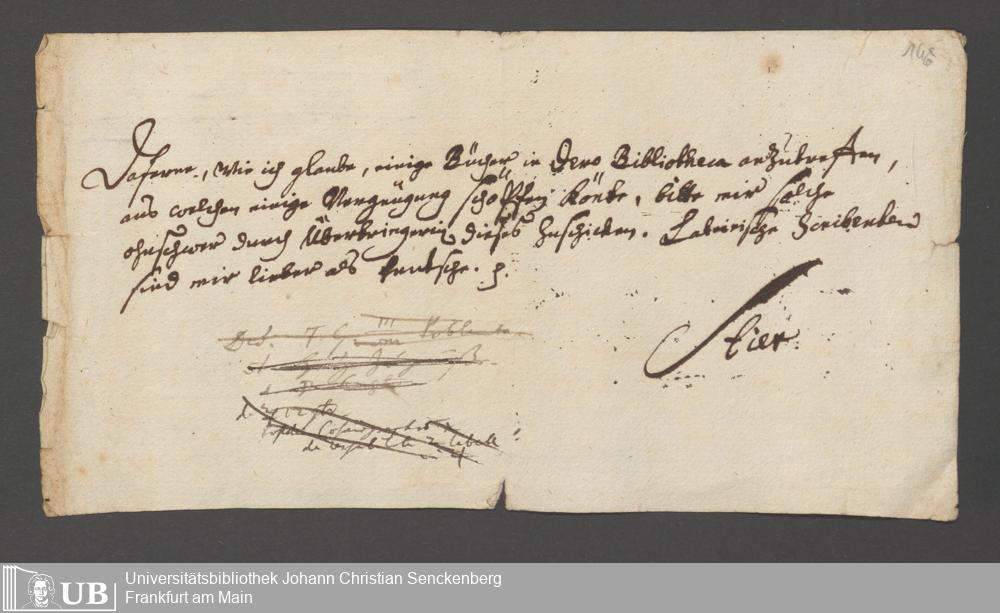 146
Daferne, wie ich glaube, einige Bücher in Dero Bibliotheca anzutreffen,
aus welchen einige Vergnügung schöpffen könte, bitte mir solche
ohnschwer durch Überbringerin dieses zuschicken. Lateinische Scribenten
sind mir lieber als teutsche. p.
Stier
UB
Universitätsbibliothek Johann Christian Senckenberg
Frankfurt am Main